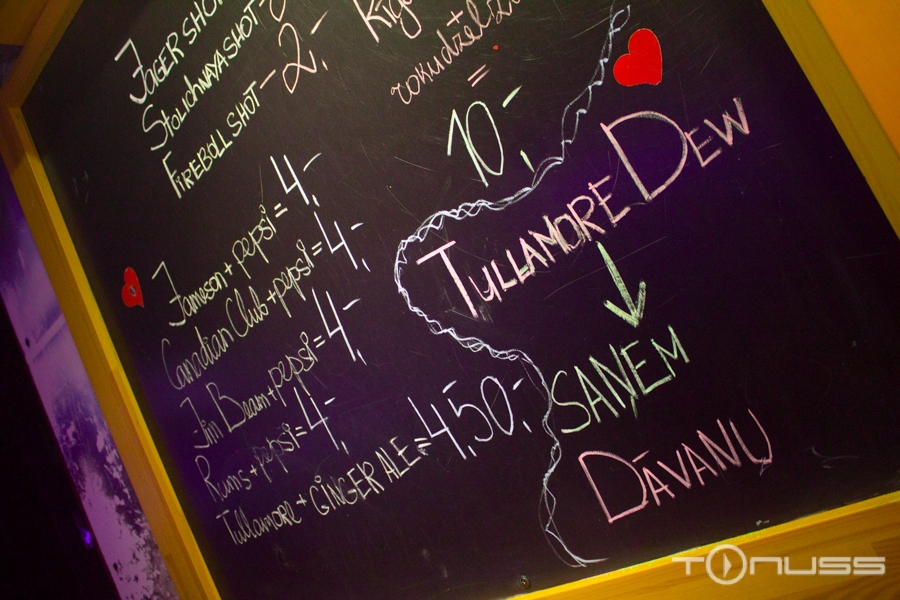 JÄGER SHOT
STOLICHNAYA SHOT -
FIREBOLL SHOT - 2,-
Jameson + pepsi = 4,-
Canadian Club + pepsi = 4,-
Jim Beam + pepsi = 4,-
Rums + pepsi = 4,-
Tullamore + GINGER ALE = 4,50,-
=
10,-
TULLAMORE DEW
SAŅEM
DĀVANU
TONUSS